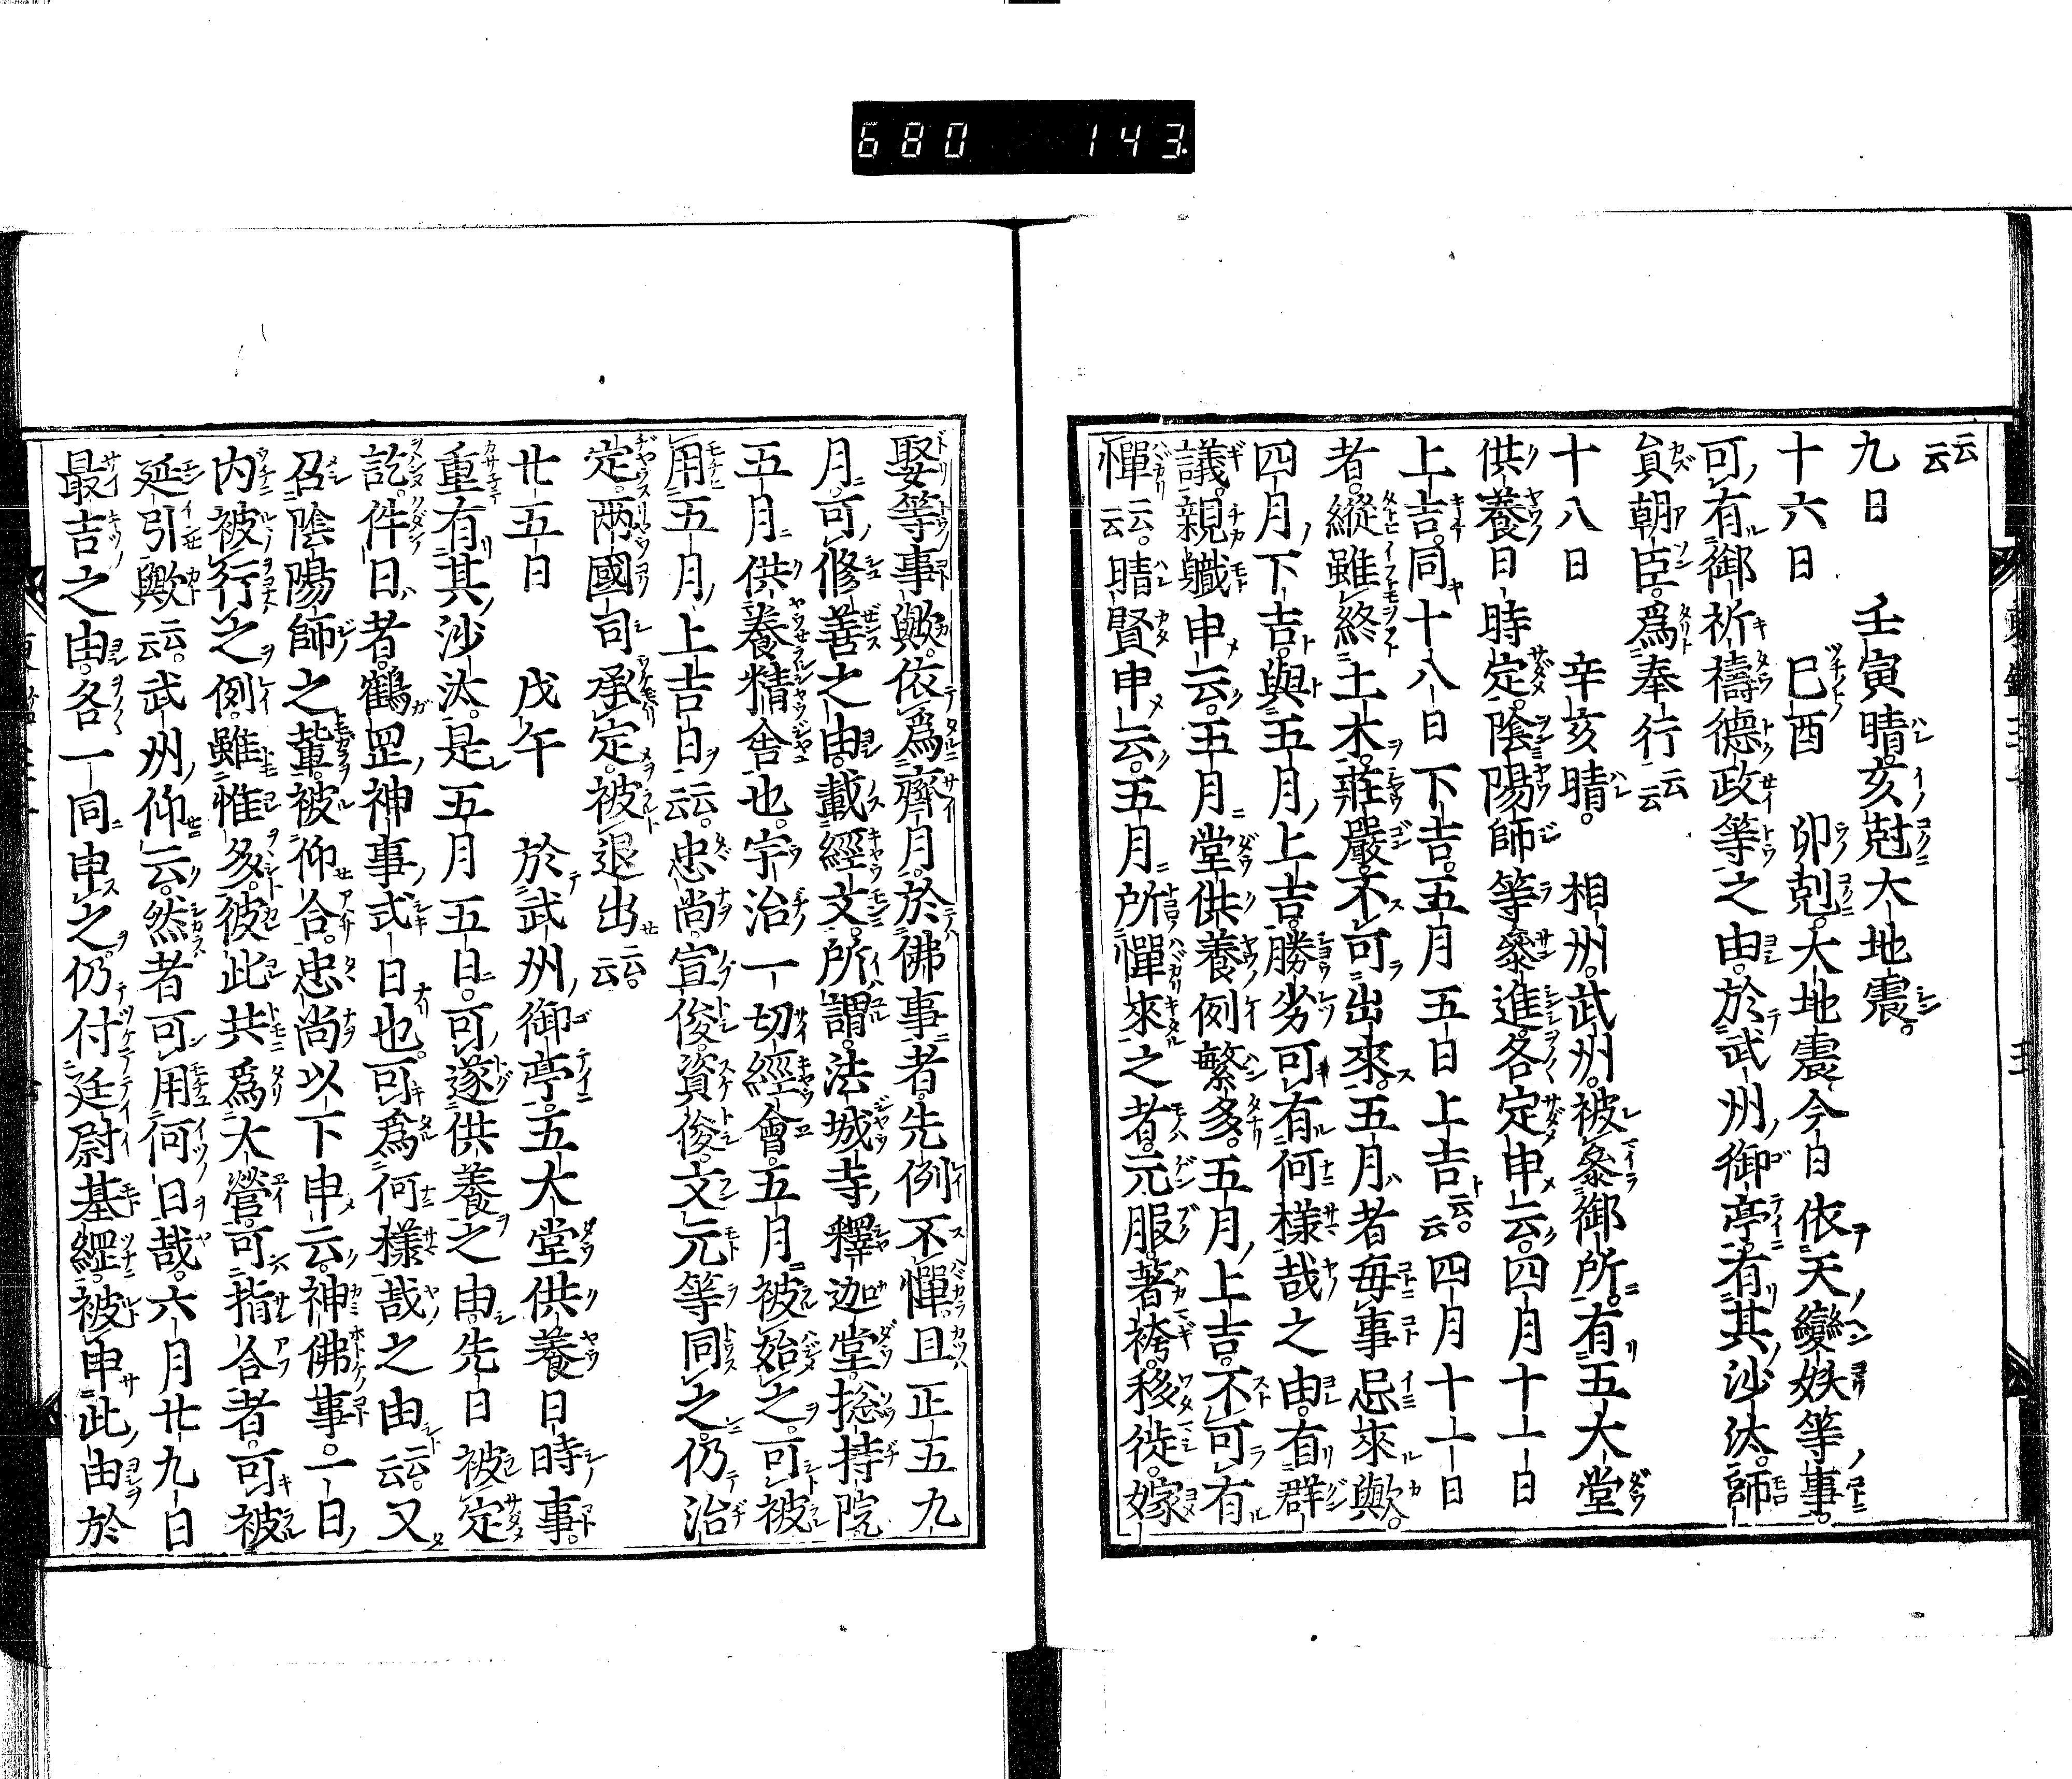 680 143
云云
九日 壬寅晴。亥尅大地震。
十六日 己酉 卯剋。大地震今日依天變妖等事。
可有御祈禱德政等之由。於武州御亭。有其沙汰。師
貟朝臣。爲奉行云云
十八日 辛亥晴。 相州。武州。被參御所。有五大堂
供養日時定。陰陽師等參進。各定申云。四月十一日
上吉。同十八日下吉。五月五日上吉云云。四月十一日
者。縱雖終土木。莊嚴。不可出來。五月者毎事忌來歟。
四月下吉。與五月上吉。勝劣可有何樣哉之由。有群
議。親職申云。五月堂供養例繁多。五月上吉。不可有
憚云云。晴賢申云。五月所憚來之者。元服。著袴。移徙。嫁
娶等事歟。依爲齊月。於佛事者。先例不憚。且正五九
月。可修善之由。載經文。所謂。法城寺釋迦堂。捴持院。
五月供養精舎也。宇治一切經會。五月被始之。可被
用五月上吉日云云。忠尚。宣俊。資俊。文元等同之。仍治
定。兩國司承定。被退出云云。
廿五日 戊午 於武州御亭。五大堂供養日時事。
重有其沙汰。是五月五日。可遂供養之由。先日被定
訖。件日者。鶴罡神事式日也。可爲何樣哉之由云云。又
召陰陽師之輩。被仰合。忠尚以下申云。神佛事。一日
内被行之例。雖惟多。彼此共爲大營。可指合者。可被
延引歟云云。武州仰云。然者可用何日哉。六月廿九日
最吉之由。各一同申之。仍付廷尉基經。被申此由於